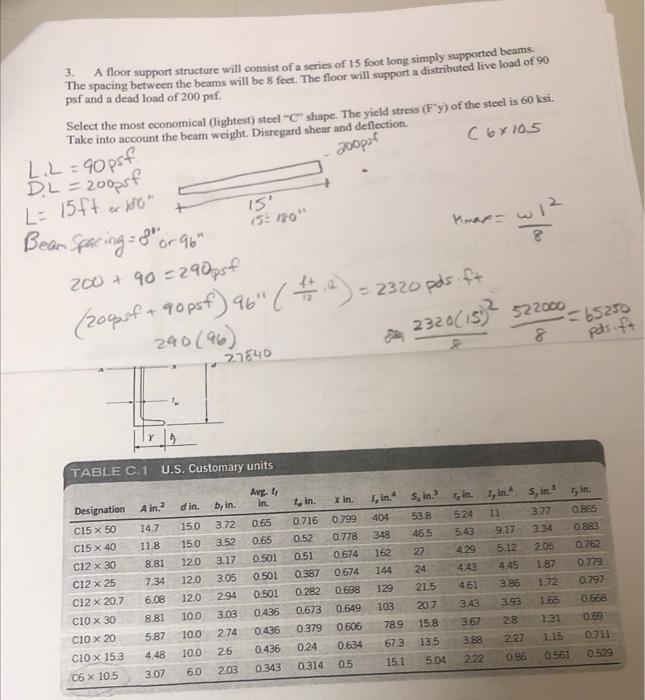 3. A floor support structure will consist of a series of 15 foot long simply supported beams.
The spacing between the beams will be 8 feet. The floor will support a distributed live load of 90
psf and a dead load of 200 psf.
Select the most economical (lightest) steel "C" shape. The yield stress (F'y) of the steel is 60 ksi.
Take into account the beam weight. Disregard shear and deflection.
C 6 x 10.5
200psf
L.L = 90psf
D.L = 200psf
L = 15ft or 180"
15'
15 = 180"
Beam Spacing = 8" or 96"
Mmax = wl²/8
200 + 90 = 290psf
(200psf + 90psf) 96" (ft/12 ) = 2320 pds·ft
290 (96)
27840
2320(15')²/8 522000/8 = 65250 pds·ft
TABLE C.1 U.S. Customary units
Designation A in.² d in. bf in. Avg. tf in. tw in. x in. Ix in.⁴ Sx in.³ rx in. Iy in.⁴ Sy in.³ ry in.
C15 × 50 14.7 15.0 3.72 0.65 0.716 0.799 404 53.8 5.24 11 3.77 0.865
C15 × 40 11.8 15.0 3.52 0.65 0.52 0.778 348 46.5 5.43 9.17 3.34 0.883
C12 × 30 8.81 12.0 3.17 0.501 0.51 0.674 162 27 4.29 5.12 2.05 0.762
C12 × 25 7.34 12.0 3.05 0.501 0.387 0.674 144 24 4.43 4.45 1.87 0.779
C12 × 20.7 6.08 12.0 2.94 0.501 0.282 0.698 129 21.5 4.61 3.86 1.72 0.797
C10 × 30 8.81 10.0 3.03 0.436 0.673 0.649 103 20.7 3.43 3.93 1.65 0.668
C10 × 20 5.87 10.0 2.74 0.436 0.379 0.606 78.9 15.8 3.67 2.8 1.31 0.69
C10 × 15.3 4.48 10.0 2.6 0.436 0.24 0.634 67.3 13.5 3.88 2.27 1.15 0.711
C6 × 10.5 3.07 6.0 2.03 0.343 0.314 0.5 15.1 5.04 2.22 0.86 0.561 0.529